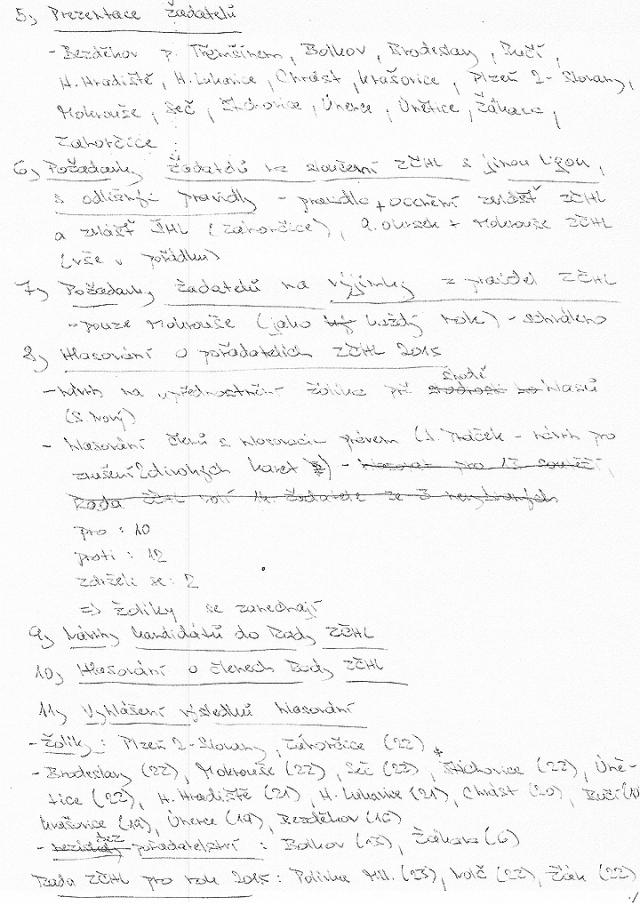 5, Prezentace žadatelů
- Bezděkov p. Třemšínem, Bolkov, Brodeslavy, Bučí,
H. Hradiště, H. Lukavice, Chrást, Krašovice, Plzeň 2-Slovany,
Mokrouše, Seč, Štichovice, Únerce, Únětice, Žákava,
Záhorčice
6, Požadavky žadatelů na sloučení ZČHL s jinou ligou,
s odlišnými pravidly - pravidla + ocenění zvlášť ZČHL
a zvlášť ŠHL (Záhorčice), a. okrsek + Mokrouše ZČHL
(vše v pořádku)
7, Požadavky žadatelů na výjimky z pravidel ZČHL
- pouze Mokrouše (jako každý rok) - schváleno
8, Hlasování o pořadatelích ZČHL 2015
- návrh na upřednostnění žolíka při shodě hlasů
(S. Nový)
- hlasování členů s hlasovacím právem (J. Ptáček - návrh pro
zrušení 2 divokých karet) - hlasovat pro 13 soutěží,
Rada ZČHL volí 14. žadatele ze 3 nevybraných
pro : 10
proti : 12
zdrželi se : 2
=> žolíky se zanechají
9, Návrhy kandidátů do Rady ZČHL
10, Hlasování o členech Rady ZČHL
11, Vyhlášení výsledků hlasování
- žolík : Plzeň 2-Slovany, Záhorčice (22)
- Brodeslavy (22), Mokrouše (22), Seč (22), Štichovice (22), Úně-
tice (22), H. Hradiště (21), H. Lukavice (21), Chrást (20), Bučí
Krašovice (19), Únerce (19), Bezděkov (16)
- bez pořadatelství : Bolkov (13), Žákava (6)
Rada ZČHL pro rok 2015 : Polívka Mil. (23), Volč (22), Žák (22)